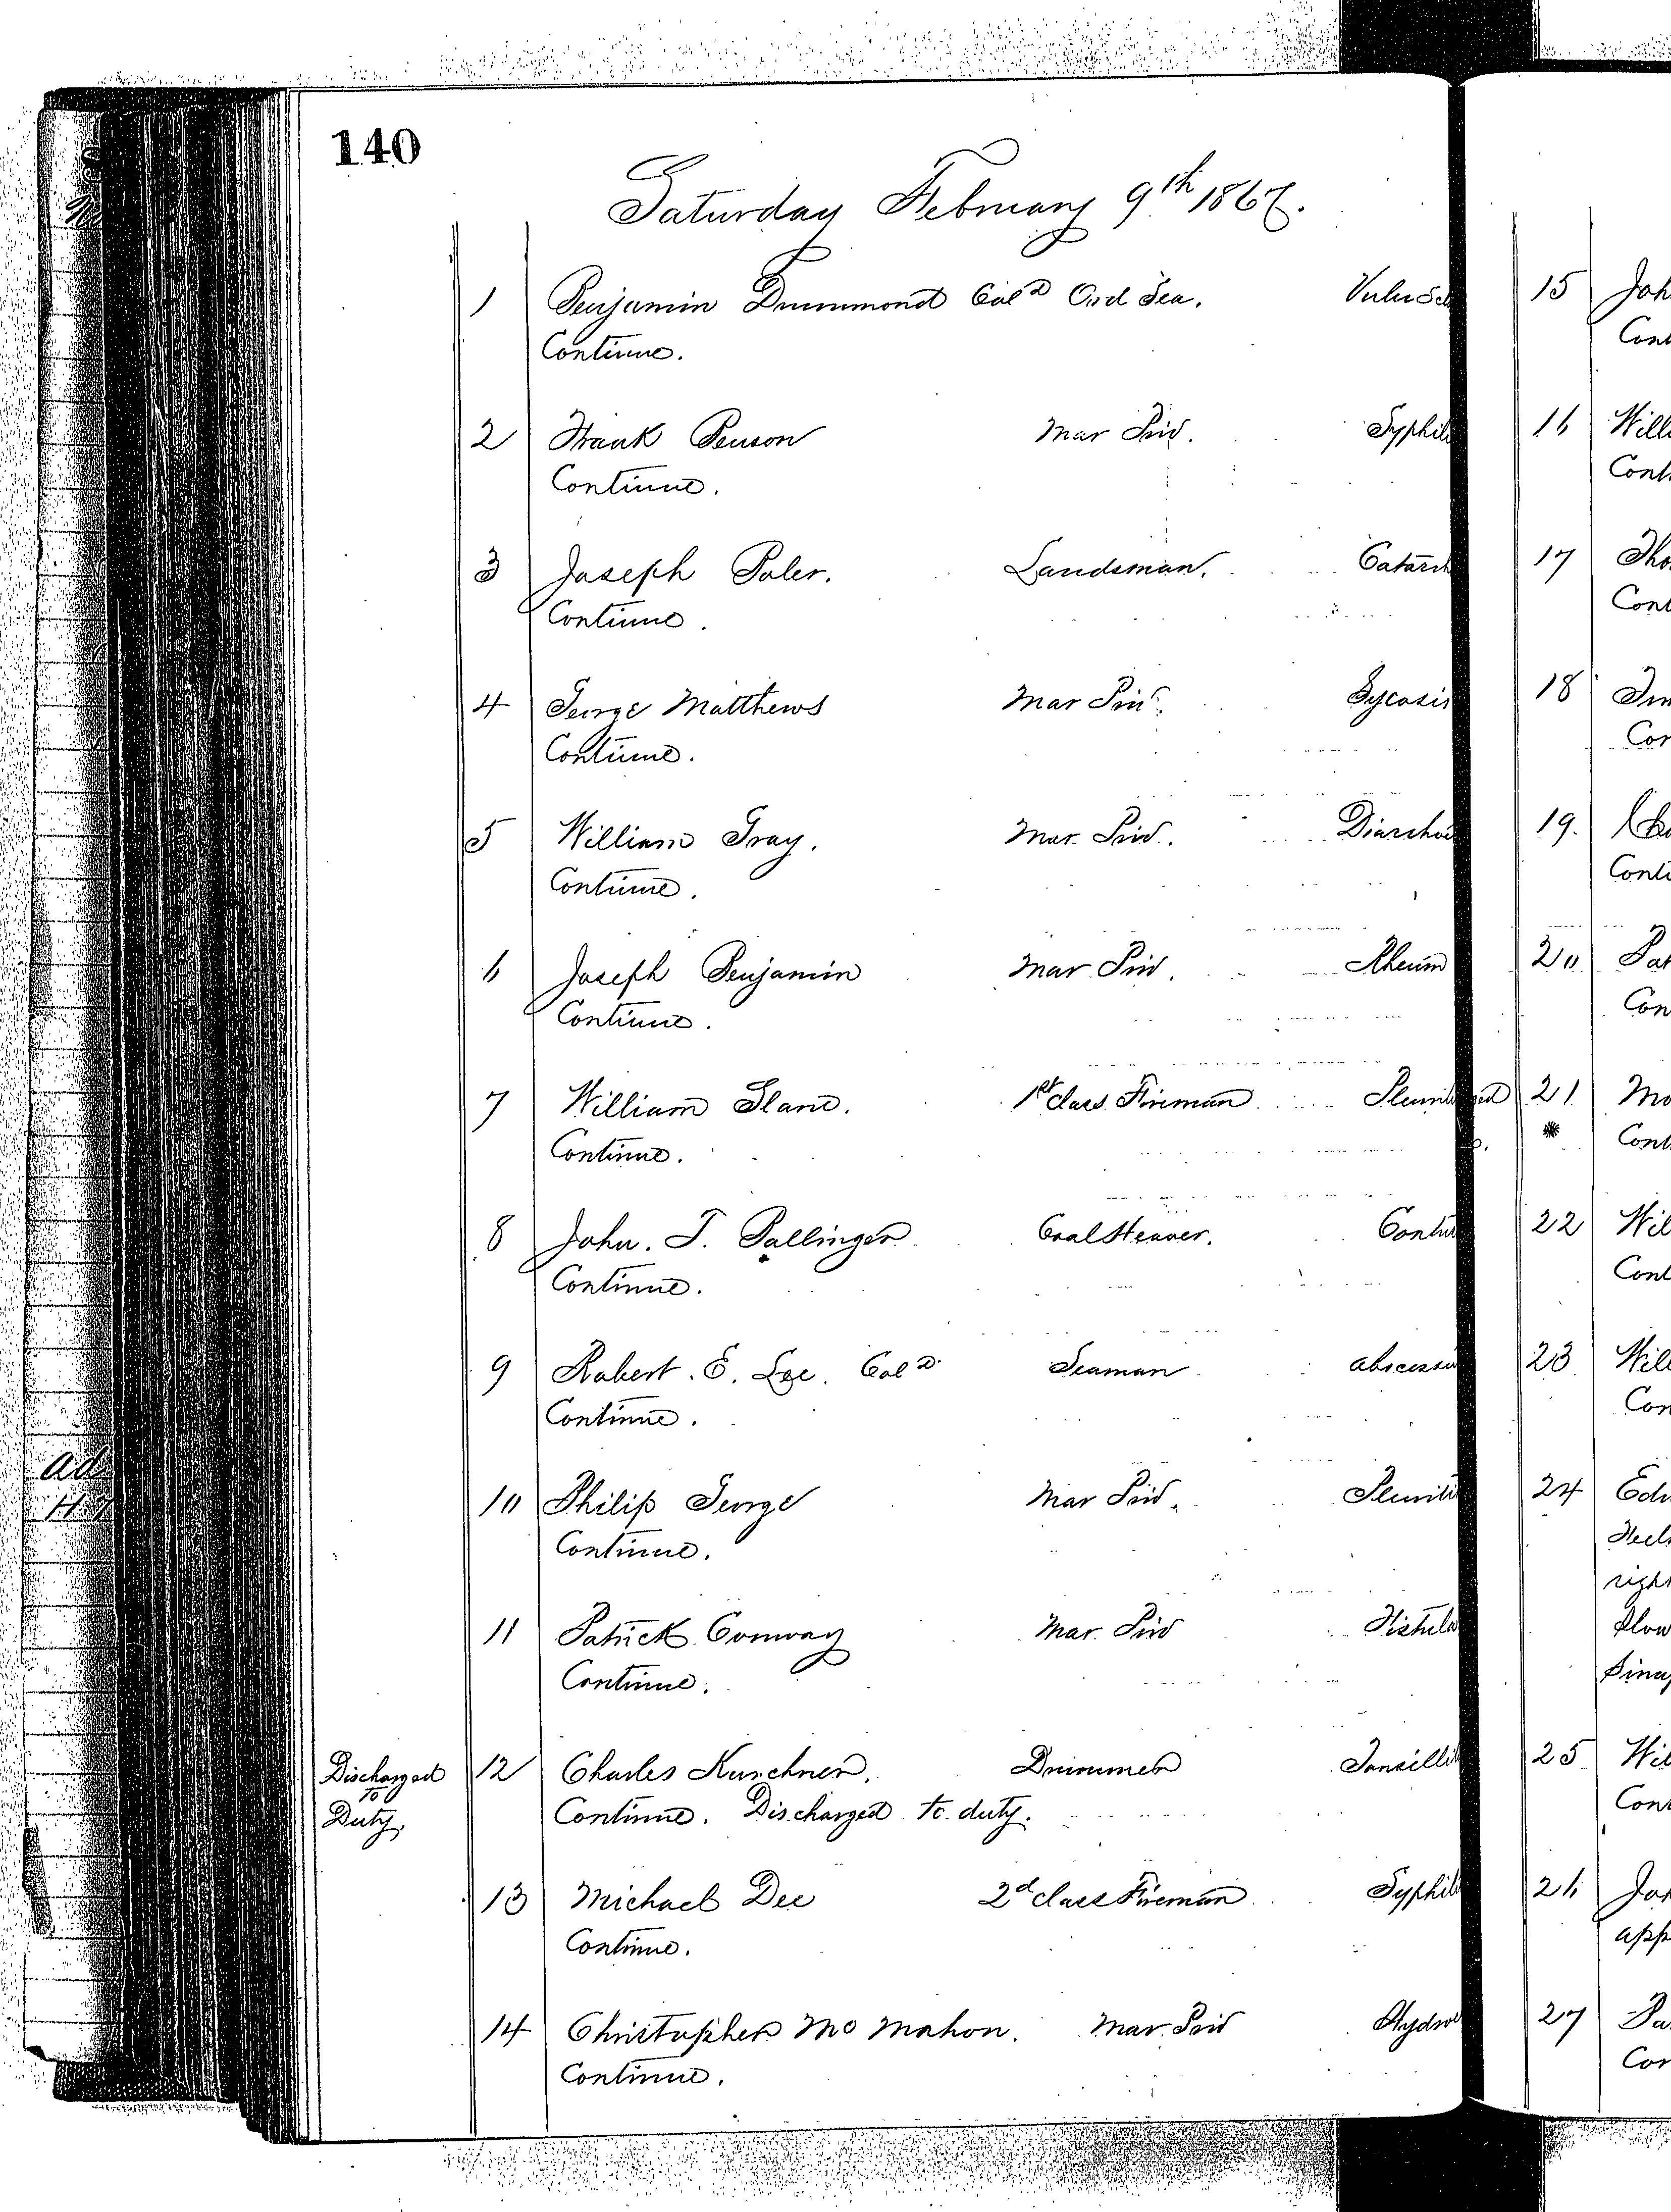 140
Saturday February 9th 1867.
1 Benjamin Drummond Cold Ord Sea. Vulnus
Continue.
2 Frank Benson Mar Priv. Syphil
Continue.
3 Joseph Baler. Landsman. Catarrh
Continue.
4 George Matthews Mar Priv. Sycosis
Continue.
5 William Gray. Mar Priv. Diarrhoe
Continue.
6 Joseph Benjamin Mar Priv. Rheum
Continue.
7 William Slane. 1st class Fireman Pleurit
Continue.
8 John. T. Ballinger Coal Heaver. Contu
Continue.
9 Robert. E. Lee. Cold Seaman Abscess
Continue.
10 Philip George Mar Priv. Pleurit
Continue.
11 Patrick Conway Mar Priv Fistula
Continue.
Discharged to Duty,
12 Charles Kurchner. Drummer Tonsilli
Continue. Discharged to duty.
13 Michael Dee 2d class Fireman Syphil
Continue.
14 Christopher Mc Mahon. Mar Priv Hydro
Continue.
15 Joh
Cont
16 Will
Cont
17 Tho
Cont
18
Con
19.
Conti
20 Pat
Con
21 Mo
* Cont
22 Wil
Cont
23 Will
Con
24 Edw
right
Slow
Sinap
25 Wil
Cont
26 Jo
app
27 Pa
Con
Ad